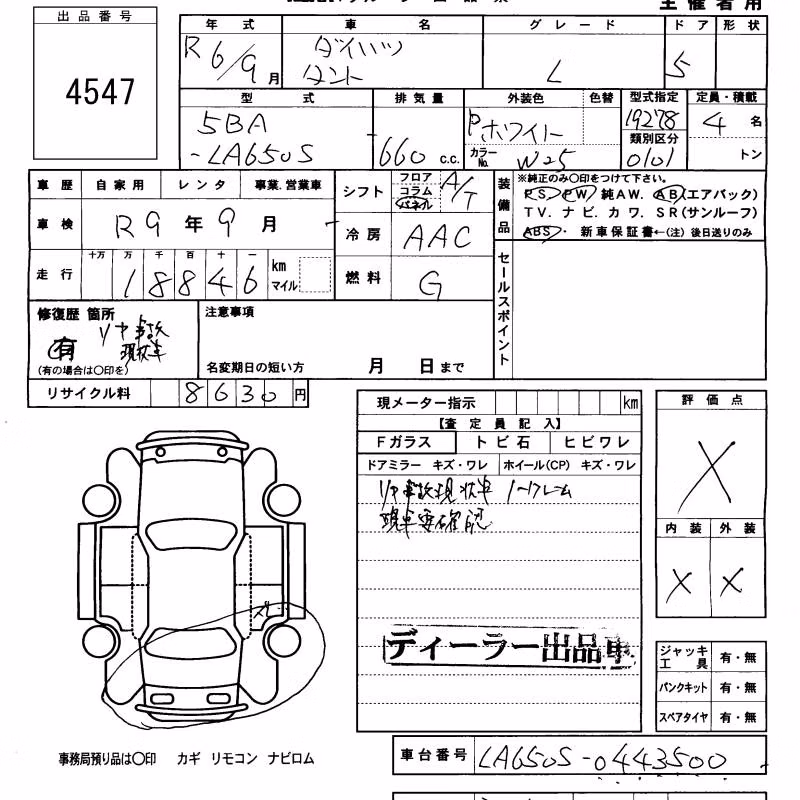 出品番号
4547
主催者用
年式 車名 グレード ドア 形状
R6/9月 ダイハツ タント L 5
型式 排気量 外装色 色替 型式指定 定員・積載
5BA -LA650S 660 c.c. Pホワイト 19278 4名
カラーNo. W25 類別区分 0101 トン
車歴 自家用 レンタ 事業.営業車
シフト フロア コラム パネル A/T
装備品 ※純正のみ○印をつけて下さい。
PS. PW. 純AW. AB(エアバック)
TV. ナビ. カワ. SR(サンルーフ)
ABS・ 新車保証書←(注) 後日送りのみ
車検 R9年9月
冷房 AAC
走行 十万 万 千 百 十 一 km マイル
18846
燃料 G
セールスポイント
修復歴 箇所 リヤ事故
有 現状車
(有の場合は○印を)
注意事項
名変期日の短い方 月 日まで
リサイクル料 8630円
現メーター指示 km
【査定員記入】
Fガラス トビ石 ヒビワレ
ドアミラー キズ・ワレ ホイール(CP) キズ・ワレ
リヤ事故現状車
現車要確認
ディーラー出品車
評価点
X
内装 外装
X X
ジャッキ 工具 有・無
パンクキット 有・無
スペアタイヤ 有・無
事務局預り品は○印 カギ リモコン ナビロム
車台番号 LA650S-0443500